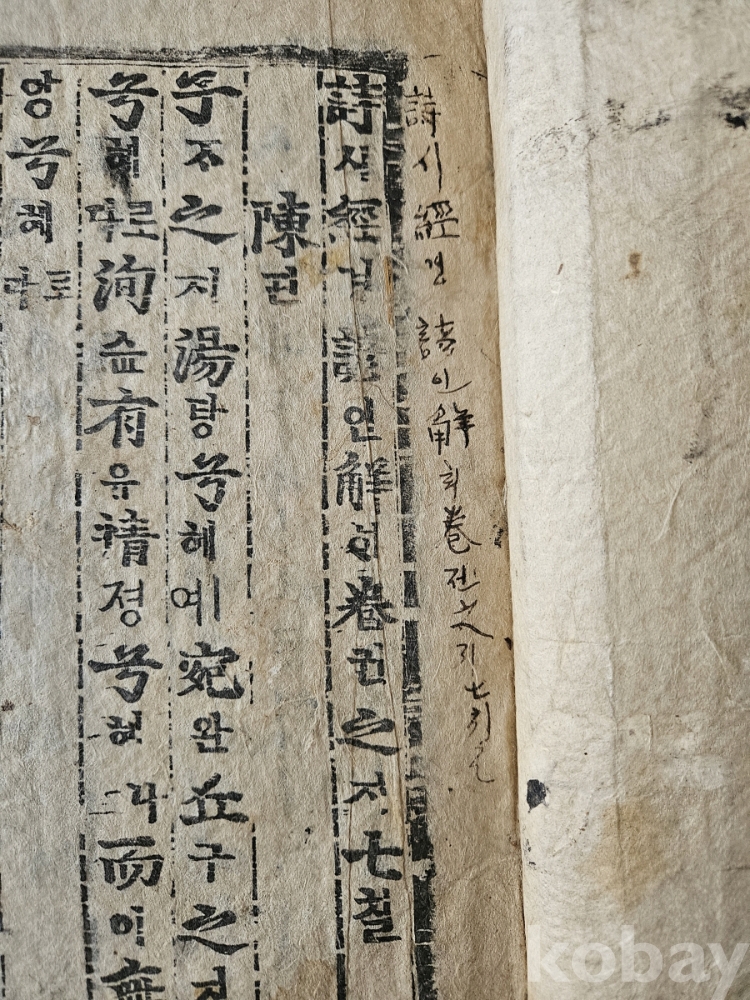 詩시經경諺언解卷
詩시經경諺언解ᄒᆡ卷권之지七칠
陳딘
子ᄌᆞ之지湯탕兮혜예宛완丘구之지
兮혜로다洵슌有유情졍兮혜나而이無
앙兮혜로다
kobay